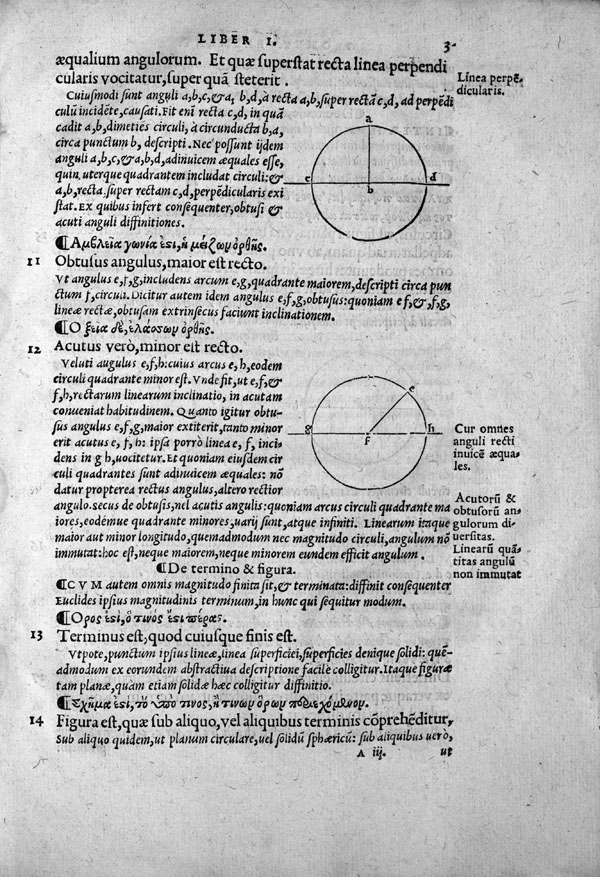 LIBER I.
3.
æqualium angulorum. Et quæ superstat recta linea perpendi
cularis vocitatur, super quã steterit.
Linea perpẽ
dicularis.
Cuiusmodi sunt anguli a,b,c,& a, b,d, à recta a,b, super rectã c,d, ad perpẽdi
culũ incidẽte, causati. Fit enĩ recta c,d, in quã
cadit a,b, dimetiẽs circuli, à circunducta b,a,
circa punctum b, descripti. Nec possunt ijdem
anguli a,b,c,& a,b,d, adinuicem æquales esse,
quin uterque quadrantem includat circuli: &
a,b, recta super rectam c,d, perpẽdicularis exi
stat. Ex quibus infert consequenter, obtusi &
acuti anguli diffinitiones.
a
c
b
d
¶Αμβλεῖα γωνία ἐστὶ, ἡ μείζων ὀρθῆς.
11 Obtusus angulus, maior est recto.
Vt angulus e,f,g, includens arcum e,g, quadrante maiorem, descripti circa pun
ctum f, circuli. Dicitur autem idem angulus e,f,g, obtusus: quoniam e f,&, f,g,
lineæ rectæ, obtusam extrinsecus faciunt inclinationem.
¶Οξεῖα δὲ, ἐλάσσων ὀρθῆς.
12 Acutus verò, minor est recto.
Veluti augulus e,f,h: cuius arcus e,h, eodem
circuli quadrante minor est. Vnde fit, ut e,f,&
f,h, rectarum linearum inclinatio, in acutam
conueniat habitudinem. Quanto igitur obtu-
sus angulus e,f,g, maior extiterit, tanto minor
erit acutus e, f, h: ipsa porrò linea e, f, inci
dens in g h, uocitetur. Et quoniam eiusdem cir
culi quadrantes sunt adinuicem æquales: nõ
datur propterea rectus angulus, altero rectior
angulo. secus de obtusis, uel acutis angulis: quoniam arcus circuli quadrante ma
iores, eodémue quadrante minores, uarij sunt, atque infiniti. Linearum itaque
maior aut minor longitudo, quemadmodum nec magnitudo circuli, angulum nõ
immutat: hoc est, neque maiorem, neque minorem eundem efficit angulum.
e
g
f
h
Cur omnes
anguli recti
inuicẽ æqua-
les.
Acutorũ &
obtusorũ an-
gulorum di-
uersitas.
Linearũ quã-
titas angulũ
non immutat
¶De termino & figura.
¶CVM autem omnis magnitudo finita sit, & terminata: diffinit consequenter
Euclides ipsius magnitudinis terminum, in hunc qui sequitur modum.
¶Ορος ἐστὶ, ὅ τινός ἐστι πέρας.
13 Terminus est, quod cuiusque finis est.
Vtpote, punctum ipsius lineæ, linea superficiei, superficies denique solidi: quẽ-
admodum ex eorundem abstractiua descriptione facilè colligitur. Itaque figuræ
tam planæ, quàm etiam solidæ hæc colligitur diffinitio.
¶Σχῆμα ἐστι, τὸ ὑπό τινος, ἤ τινων ὅρων περιεχόμενον.
14 Figura est, quæ sub aliquo, vel aliquibus terminis cõprehẽditur,
Sub aliquo quidem, ut planum circulare, uel solidũ sphæricũ: sub aliquibus uerò,
A iij. ut